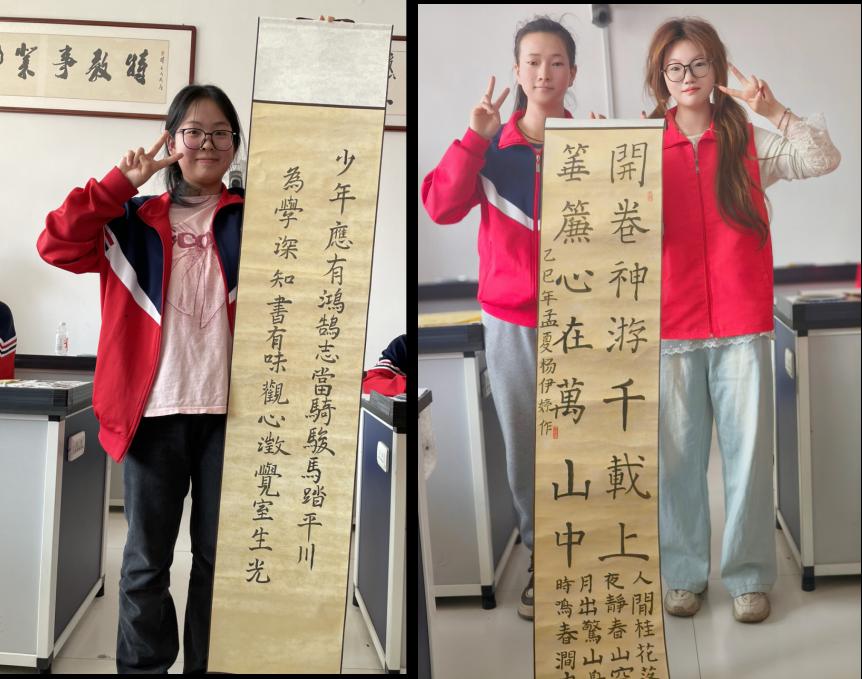 特教事業
少年應有鴻鵠志當騎駿馬踏平川
為學深知書有味觀心澂覺室生光
開卷神游千載上
箠簾心在萬山中
乙巳年孟夏杨伊婷作
人閒桂花落
夜靜春山空
月出驚山
時鳴春澗